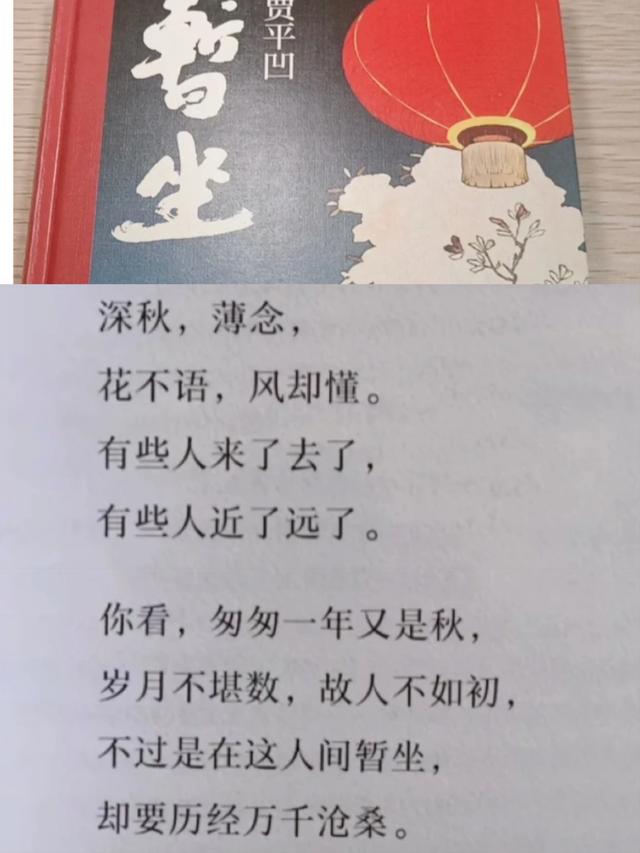 暫坐
贾平凹
深秋，薄念，
花不语，风却懂。
有些人来了去了，
有些人近了远了。
你看，匆匆一年又是秋，
岁月不堪数，故人不如初，
不过是在这人间暂坐，
却要历经万千沧桑。